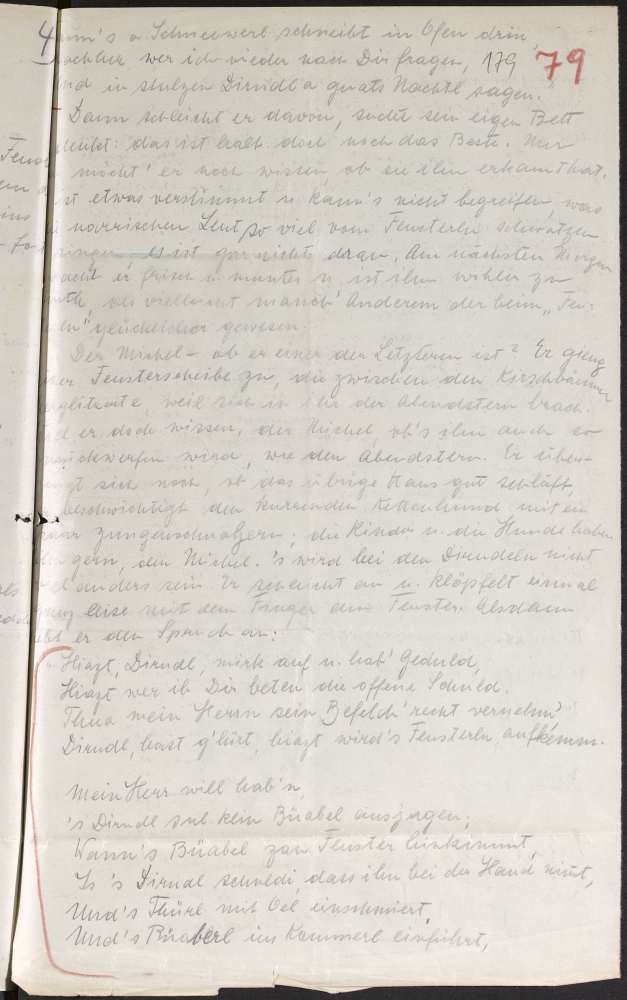 4
179
79
's a Schneewerl schneibt in Ofen drin,
wer ich wieder nach Dir fragen,
und in stulzen Dirndl a guats Nachtl sagen."
Dann schleicht er davon, sucht sein eigen Bett
: das ist halt doch noch das Beste. Nur
möcht' er noch wissen, ob sie ihn erkannt hat.
ist etwas verstimmt u. kann's nicht begreifen, was
narrischen Leut so viel vom Fensterln schwätzen
singen es ist gar nichts dran. Am nächsten Morgen
er frisch u. munter u. ist ihm wohler zu
als vielleicht manch' Anderem der beim „Fen-
glücklicher gewesen.
Der Michel – ob er einer der Letztern ist? Er gieng
Fensterscheibe zu, die zwischen den Kirschbäumen
glitzerte, weil sich in ihr der Abendstern brach.
er doch wissen, der Michel, ob's ihn auch so
zurückwerfen wird, wie den Abendstern. Er über-
zeugt sich noch, ob das übrige Haus gut schläft,
beschwichtigt den knurrenden Kettenhund mit ein
Zungenschnalzern; die Kinder u. die Hunde haben
gern, den Michel. 's wird bei den Dirndeln nicht
anders sein. Er schleicht an u. klöpfelt einmal
leise mit dem Finger ans Fenster. Alsdann
er den Spruch an:
Hiazt, Dirndl, mirk auf u. hab' Geduld,
Hiazt wer ih Dir beten die offene Schuld.
Thua mein Herrn sein Befelch' recht vernehm'
Dirndl, hast g'hört, hiazt wird's Fensterln aufkemm.
Mein Herr will hab'n,
's Dirndl sull kein Büabel ausjagen;
Wann's Büabel zan Fenster hinkimmt,
Is 's Dirndl schuldi, dass ihn bei der Hand nimt,
Und's Thürl mit Oel einschmiert,
Und's Büaberl ins Kammerl einführt,